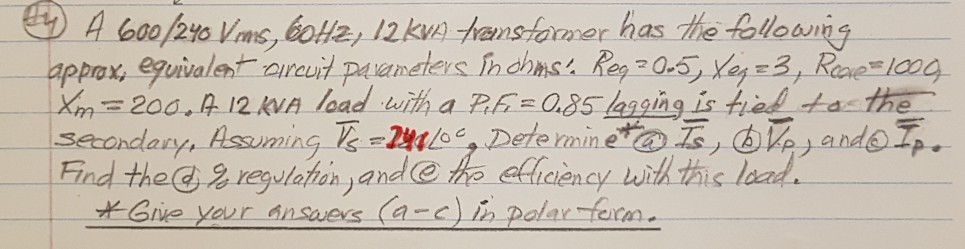 #4) A 600/240 Vrms, 60Hz, 12 KVA transformer has the following
approx, equivalent circuit parameters in ohms: Req = 0.5, Xeq = 3, Rcore = 1000,
Xm = 200. A 12 KVA load with a P.F. = 0.85 lagging is tied to the
secondary. Assuming Vs = 240∠0°, Determine* (a) Is, (b) Vp, and (c) Ip.
Find the (d) % regulation, and (e) the efficiency with this load.
* Give your answers (a-c) in polar form.